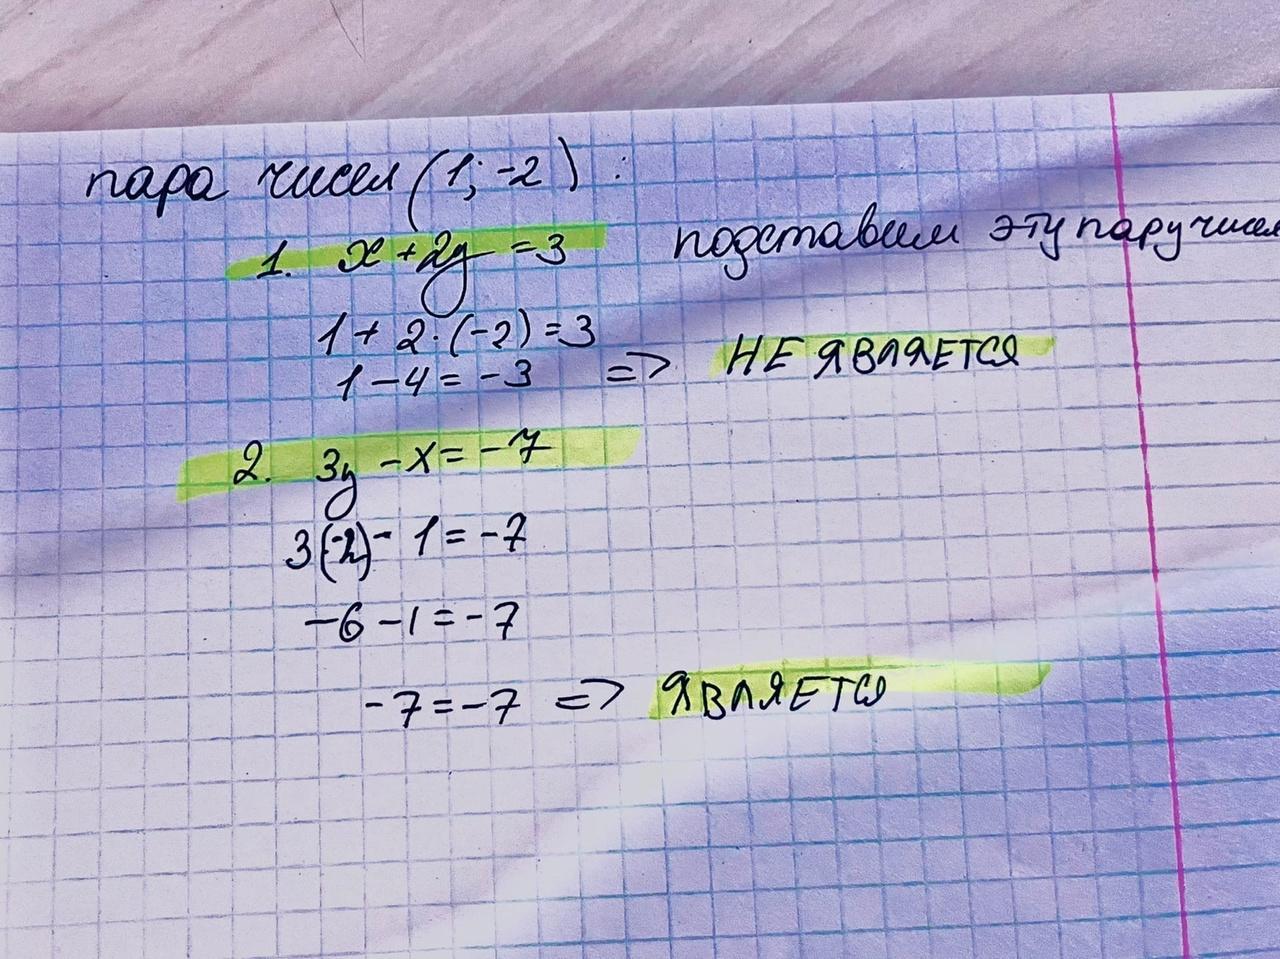 пара чисел (1; -2) :
1. x + 2y = 3 подставим эту пару чисел
1 + 2·(-2) = 3
1 - 4 = -3 => НЕ ЯВЛЯЕТСЯ
2. 3y - x = -7
3(-2) - 1 = -7
-6 - 1 = -7
-7 = -7 => ЯВЛЯЕТСЯ